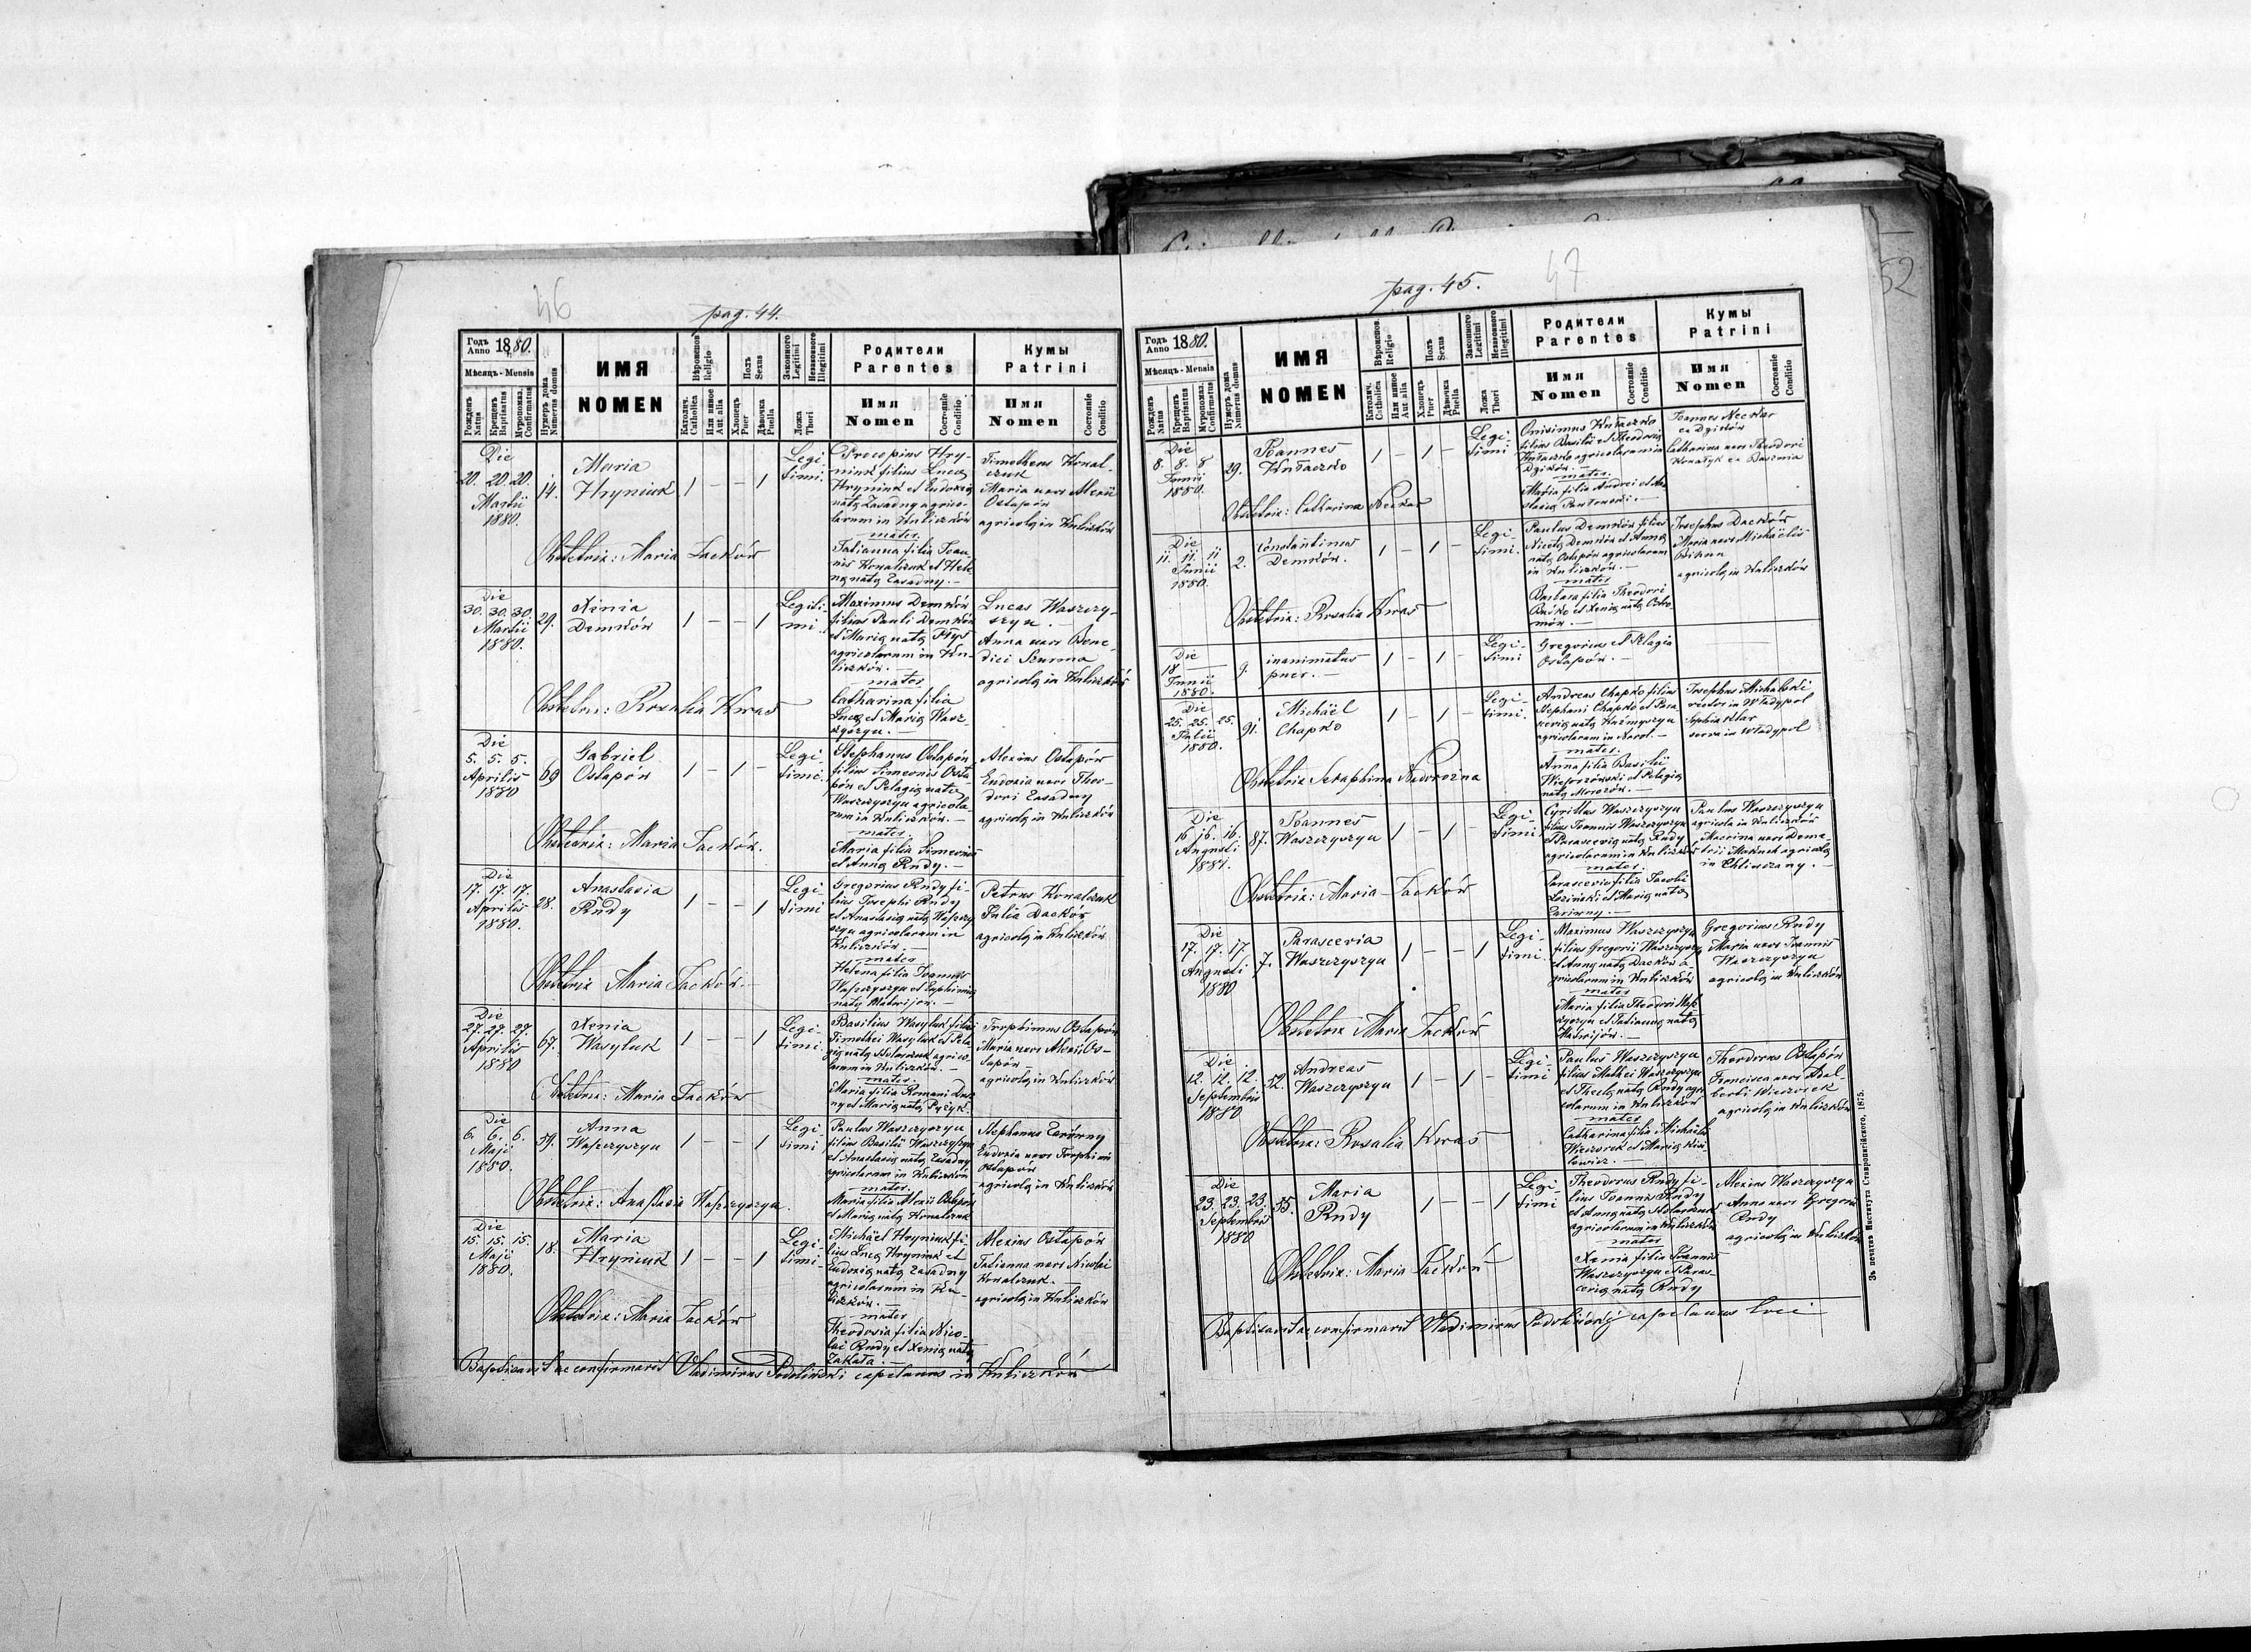 46
pag. 44.
Годъ Anno 1880.
Мѣсяцъ - Mensis
Рожденъ Natus
Крещенъ Baptisatus
Муропомаз. Confirmatus
Нумеръ дома Numerus domus
ИМЯ
NOMEN
Вѣроисповѣд. Religio
Католич. Catholica
Или инное Aut alia
Полъ Sexus
Хлопець Puer
Дѣвочка Puella
Законного Legitimi
Незаконного Illegitimi
Ложа Thori
Родители
Parentes
Имя
Nomen
Состояніе Conditio
Кумы
Patrini
Имя
Nomen
Состояніе Conditio
Die
20. 20. 20.
Martii
1880.
14.
Maria
Hryniuk
1 - - 1
Legi-
timi.
Procopius Hry-
niuk filius Lucę
Hryniuk et Eudoxię
natę Zasadny agrico-
larum in Kuliczków
mater.
Tatianna filia Ioan-
nis Kowalczuk et Hele-
nę natę Zasadny. —
Timotheus Kowal-
czuk
Maria uxor Alexii
Ostapów
agricolę in Kuliczków
Obstetrix: Maria Jacków
Die
30. 30. 30.
Martii
1880.
29.
Xenia
Demków
1 - - 1
Legiti-
mi.
Maximus Demków
filius Pauli Demków
et Marię natę Hys
agricolarum in Ku-
liczków. —
mater
Catharina filia
Lucę et Marię Wasz-
czyszyn. —
Lucas Waszczy-
szyn. —
Anna uxor Bene-
dici Szurma
agricolę in Kuliczków
Obstetrix: Rosalia Kwas
Die
5. 5. 5.
Aprilis
1880
69
Gabriel
Ostapów
1 - 1 -
Legi-
timi.
Stephanus Ostapów
filius Simeonis Osta-
pów et Pelagię natę
Waszczyszyn agricola-
rum in Kuliczków. —
mater.
Maria filia Simeonis
et Annę Rudy. —
Alexius Ostapów
Eudoxia uxor Theo-
dori Zasadny
agricolę in Kuliczków
Obstetrix: Maria Jacków.
Die
17. 17. 17.
Aprilis
1880.
28.
Anastasia
Rudy
1 - - 1
Legi-
timi
Gregorius Rudy fi-
lius Josephi Rudy
et Anastasię natę Waszczy-
szyn agricolarum in
Kuliczków. —
mater
Helena filia Ioannis
Waszczyszyn et Euphimię
natę Matwijow. —
Petrus Kowalczuk
Julia Dacków
agricolę in Kuliczków
Obstetrix Maria Jacków. —
Die
27. 27. 27.
Aprilis
1880
67.
Xenia
Wasyluk
1 - - 1
Legi-
timi.
Basilius Wasyluk filius
Timothei Wasyluk et Pela-
gię natę agrico-
larum in Kuliczków. —
mater.
Maria filia Romani
et Marię natę Pyżyk.
Trophimus Ostapów
Maria uxor Alexii Os-
tapów
agricolę in Kuliczków
Obstetrix: Maria Jacków
Die
6. 6. 6.
Maji
1880.
Anna
Waszczyszyn
1 - - 1
Legi-
timi
Paulus Waszczyszyn
filius Basilii Waszczyszyn
et Anastasię natę Zasadny
agricolarum in Kuliczków
mater.
Maria filia Alexii Ostapów
et Marię natę Kowalczuk
Stephanus
Eudoxia uxor Trophimi
Ostapów
agricolę in Kuliczków
Obstetrix: Anastasia Waszczyszyn.
Die
15. 15. 15.
Maji
1880.
18.
Maria
Hryniuk
1 - - 1
Legi-
timi
Michäel Hryniuk fi-
lius Lucę Hryniuk et
Eudoxię natę Zasadny
agricolarum in Ku-
liczków.
mater
Theodosia filia Nico-
lai Rudy et Xenię natę
Zakała. —
Alexius Ostapów
Tatianna uxor Nicolai
Kowalczuk. —
agricolę in Kuliczków
Obstetrix: Maria Jacków
Baptisavit ac confirmavit Vladimirus Podoliński capelanus in Kuliczków
47
pag. 45.
Годъ Anno 1880.
Мѣсяцъ - Mensis
Рожденъ Natus
Крещенъ Baptisatus
Муропомаз. Confirmatus
Нумеръ дома Numerus domus
ИМЯ
NOMEN
Вѣроисповѣд. Religio
Католич. Catholica
Или инное Aut alia
Полъ Sexus
Хлопець Puer
Дѣвочка Puella
Законного Legitimi
Незаконного Illegitimi
Ложа Thori
Родители
Parentes
Имя
Nomen
Состояніе Conditio
Кумы
Patrini
Имя
Nomen
Состояніе Conditio
Die
8. 8. 8
Junii
1880.
29.
Ioannes
1 - 1 -
Legi-
timi
Onisimus
filius Basilii et Theodorię
agricolarum in
Dzików. —
mater.
Maria filia Andrei et
Ioannes Neckar
ex Dzików
Catharina uxor Theodori
Obstetrix: Catharina Neckar
Die
11. 11. 11
Junii
1880.
2.
Constantinus
Demków.
1 - 1 -
Legi-
timi.
Paulus Demków filius
Nicetę Demków et Annę
natę Ostapów agricolarum
in Kuliczków. —
mater
Barbara filia Theodori
et Xenię natę Ostro-
mów. —
Josephus Dacków
Maria uxor Michäelis
agricolę in Kuliczków
Obstetrix: Rosalia Kwas
Die
18 —
Junii
1880.
9.
inanimatus
puer. —
1 - 1 -
Legi-
timi
Gregorius et Pelagia
Ostapów. —
Die
25. 25. 25.
Julii
1880.
91.
Michäel
Chapko
1 - 1 -
Legi-
timi.
Andreas Chapko filius
Stephani Chapko et Para-
scevię natę Kuźmyszyn
agricolarum in Narol. —
mater.
Anna filia Basilii
et Pelagię
natę Morozów. —
Josephus Michalski
rector in Władypol
Sophia
serva in Władypol
Obstetrix Seraphina
Die
16 16. 16.
Augusti
1880.
87.
Ioannes
Waszczyszyn
1 - 1 -
Legi-
timi
Cyrillus Waszczyszyn
filius Ioannis Waszczyszyn
et Parascevię natę Rudy
agricolarum in Kuliczków
mater.
Parascevia filia Jacobi
Łoziński et Marię natę
Paulus Waszczyszyn
agricola in Kuliczków
Macrina uxor Deme-
trii agricolę
in Chliwczany. —
Obstetrix: Maria Jacków
Die
17. 17. 17
Augusti.
1880
7.
Parascevia
Waszczyszyn
1 - - 1
Legi-
timi.
Maximus Waszczyszyn
filius Gregorii Waszczyszyn
et Annę natę Dacków a-
gricolarum in Kuliczków
mater
Maria filia Theodori Wasz-
czyszyn et Tatiannę natę
Matwijów. —
Gregorius Rudy
Maria uxor Ioannis
Waszczyszyn
agricolę in Kuliczków
Obstetrix Maria Jacków
Die
12. 12. 12.
Septembris
1880
52.
Andreas
Waszczyszyn
1 - 1 -
Legi-
timi
Paulus Waszczyszyn
filius Mathei Waszczyszyn
et Theclę natę Rudy agri-
colarum in Kuliczków
mater
Catharina filia Michäelis
Wieczorek et Marię Kisi-
lewicz. —
Theodorus Ostapów
Francisca uxor Adal-
berti Wieczorek
agricolę in Kuliczków
Obstetrix: Rosalia Kwas
Die
23. 23. 23.
Septembris
1880
35.
Maria
Rudy
1 - - 1
Legi-
timi
Theodorus Rudy fi-
lius Ioannis Rudy
et Annę natę
agricolarum in Kuliczków
mater
Xenia filia Ioannis
Waszczyszyn et Paras-
cevię natę Rudy
Alexius Waszczyszyn
Anna uxor Gregorii
Rudy
agricolę in Kuliczków
Obstetrix: Maria Jacków
Baptisavit ac confirmavit Vladimirus Podoliński capelanus loci
Зъ печатнѣ Института Ставропигійского, 1875.
52